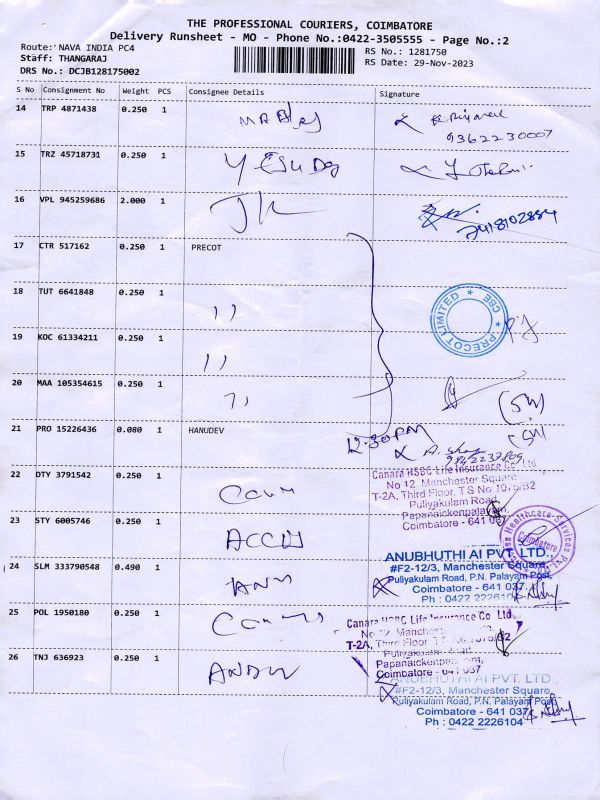 THE PROFESSIONAL COURIERS, COIMBATORE
Delivery Runsheet - MO - Phone No.:0422-3505555 - Page No.:2
Route: NAVA INDIA PC4
RS No.: 1281750
Staff: THANGARAJ
RS Date: 29-Nov-2023
DRS No.: DCJB128175002
S No Consignment No Weight PCS Consignee Details Signature
14 TRP 4871438 0.250 1
9362230007
15 TRZ 45718731 0.250 1
16 VPL 945259686 2.000 1 JK
17 CTR 517162 0.250 1 PRECOT
18 TUT 6641848 0.250 1 ,,
PRECOT LIMITED ★ CBE ★
19 KOC 61334211 0.250 1 ,,
20 MAA 105354615 0.250 1 ,,
(SW)
21 PRO 15226436 0.080 1 HANUDEV 12:30PM
(SW)
Canara HSBC Life Insurance Co Ltd
No 12, Manchester Square,
T-2A, Third Floor, T S No 1075/B2
Puliyakulam Road,
Papanaickenpalayam,
Coimbatore - 641 037
22 DTY 3791542 0.250 1
23 STY 6005746 0.250 1
Healthcare Services
Coimbatore
24 SLM 333790548 0.490 1
ANUBHUTHI AI PVT. LTD.,
#F2-12/3, Manchester Square,
Puliyakulam Road, P.N. Palayam Post,
Coimbatore - 641 037.
Ph : 0422 2226104
25 POL 1950180 0.250 1
Canara HSBC Life Insurance Co Ltd
No 12, Manchester
T-2A, Third Floor, T S No 1075/B2
Puliyakulam Road
Papanaickenpalayam,
Coimbatore - 641 037
26 TNJ 636923 0.250 1
ANUBHUTHI AI PVT. LTD.,
#F2-12/3, Manchester Square,
Puliyakulam Road, P.N. Palayam Post,
Coimbatore - 641 037.
Ph : 0422 2226104